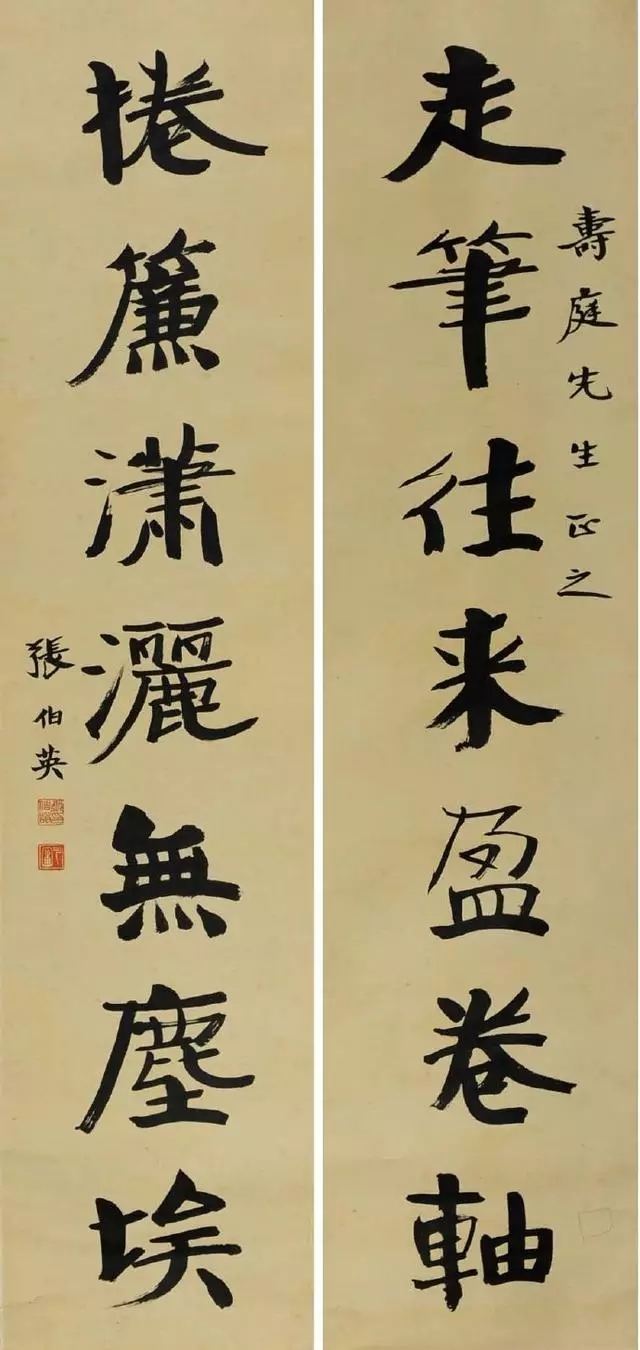 壽庭先生正之
走筆往来盈卷軸
捲簾瀟灑無塵埃
張伯英